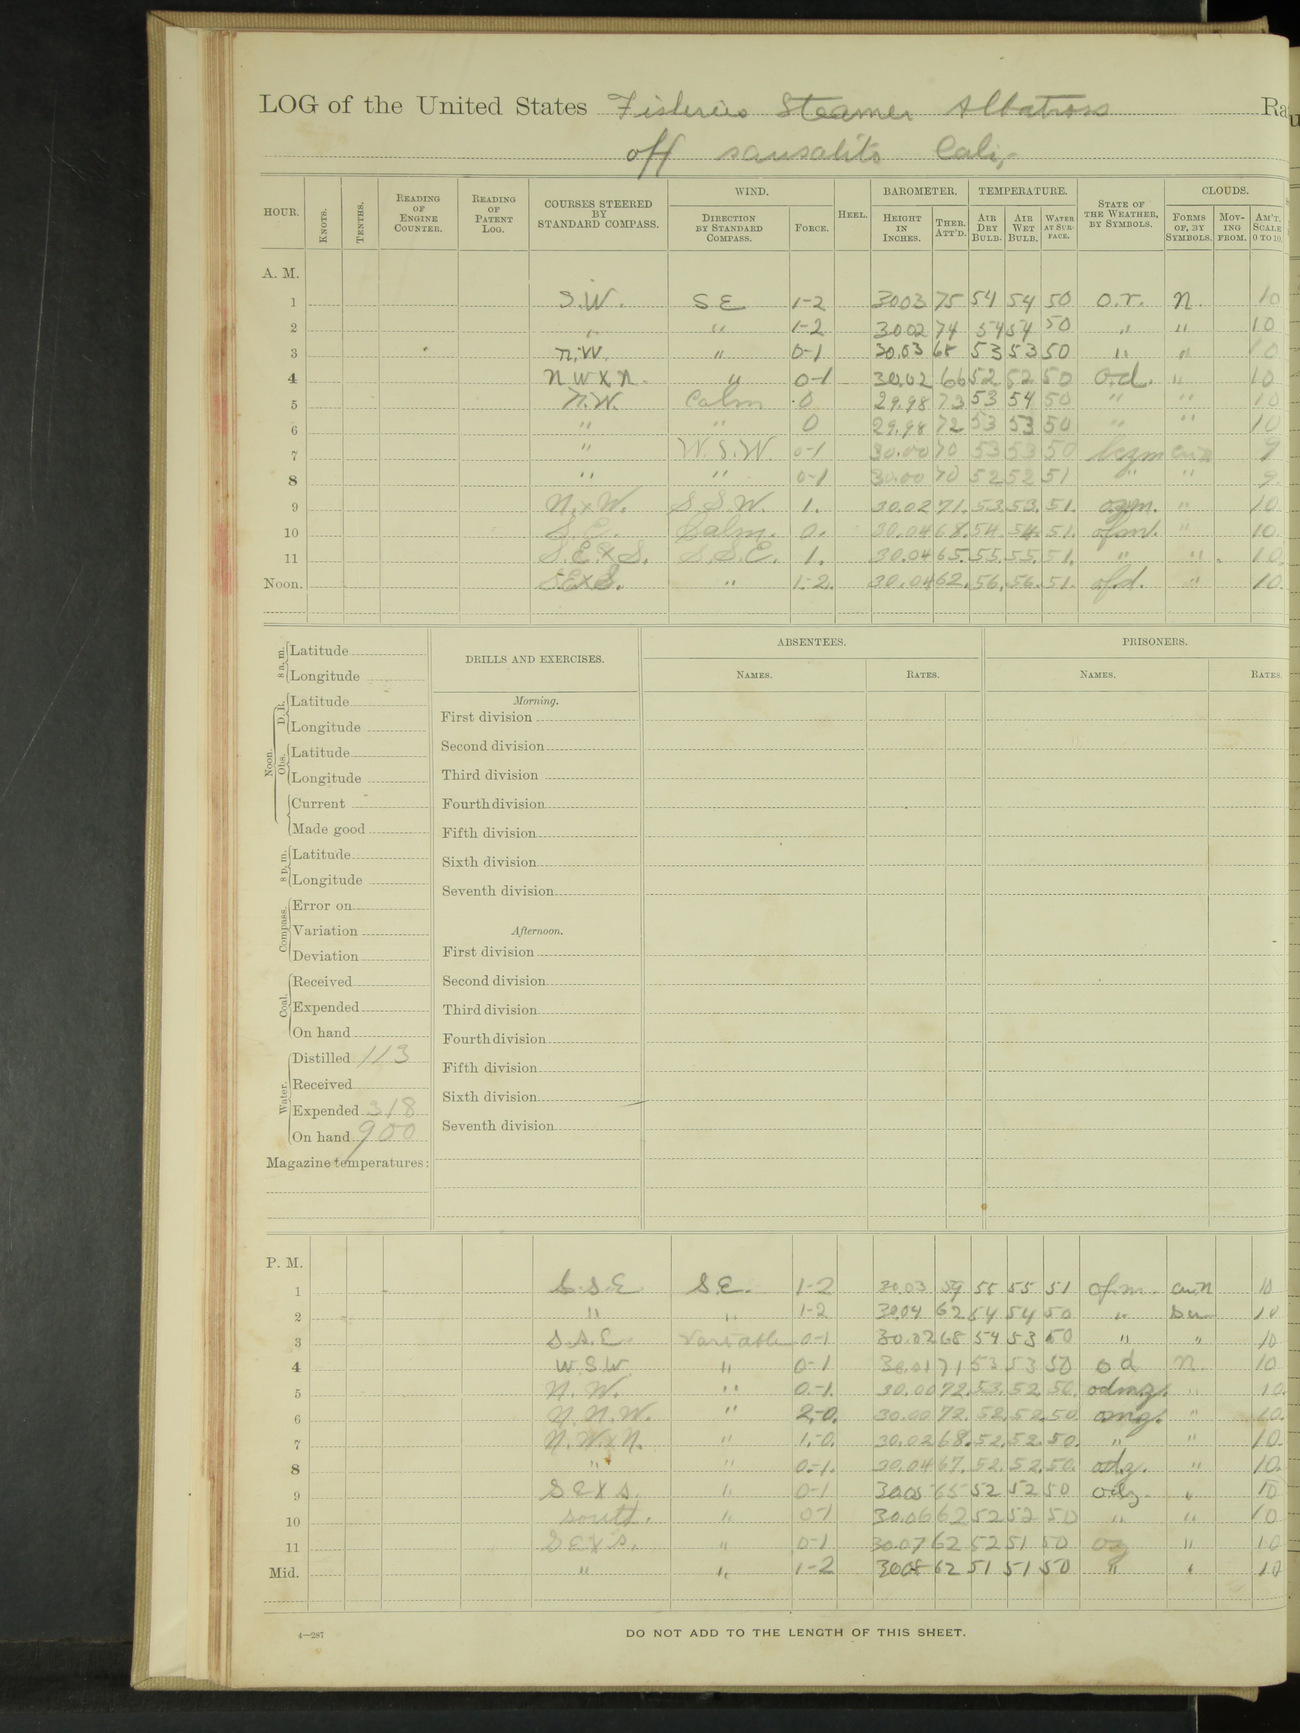 LOG of the United States Fisheries Steamer Albatross Ra
off Sausalito Cali,
HOUR. KNOTS. TENTHS. READING OF ENGINE COUNTER. READING OF PATENT LOG. COURSES STEERED BY STANDARD COMPASS. WIND. DIRECTION BY STANDARD COMPASS. FORCE. HEEL. BAROMETER. HEIGHT IN INCHES. THER. ATT'D. TEMPERATURE. AIR DRY BULB. AIR WET BULB. WATER AT SURFACE. STATE OF THE WEATHER, BY SYMBOLS. CLOUDS. FORMS OF, BY SYMBOLS. MOVING FROM. AM'T. SCALE 0 TO 10.
A. M.
1 S.W. SE 1-2 30.03 75 54 54 50 o.r. n. 10
2 " " 1-2 30.02 74 54 54 50 " " 10
3 n.W. " 0-1 30.03 68 53 53 50 " " 10
4 n W x n. " 0-1 30.02 66 52 52 50 o.d. " 10
5 n.W. Calm 0 29.98 73 53 54 50 " " 10
6 " " 0 29.98 72 53 53 50 " " 10
7 " W.S.W. 0-1 30.00 70 53 53 50 9
8 " " 0-1 30.00 70 52 52 51 " " 9
9 N.xW. S.S.W. 1. 30.02 71. 53. 53. 51. ogm. " 10
10 S.E. Calm. 0. 30.04 68. 54. 54. 51. ofm. " 10.
11 S.E.xS. S.S.E. 1. 30.04 65. 55. 55. 51. " " 10.
Noon. SExS. " 1-2. 30.04 62. 56. 56. 51. of.d. " 10.
8 a. m. Latitude
Longitude
Noon. D. R. Latitude
Longitude
Obs. Latitude
Longitude
Current
Made good
8 p. m. Latitude
Longitude
Compass. Error on
Variation
Deviation
Coal. Received
Expended
On hand
Water. Distilled 113
Received
Expended 318
On hand 900
Magazine temperatures:
DRILLS AND EXERCISES.
Morning.
First division
Second division
Third division
Fourth division
Fifth division
Sixth division
Seventh division
Afternoon.
First division
Second division
Third division
Fourth division
Fifth division
Sixth division
Seventh division
ABSENTEES.
NAMES. RATES.
PRISONERS.
NAMES. RATES.
P. M.
1 S.S.E SE. 1-2 30.03 59 55 55 51 of.m. cu.n 10
2 " " 1-2 30.04 62 54 54 50 " 10
3 S.S.E Variable 0-1 30.02 68 54 53 50 " " 10
4 W.S.W. " 0-1 30.01 71 53 53 50 o d n. 10
5 N.W. " 0-1. 30.00 72. 53. 52. 50. odmg. " 10.
6 N.N.W. " 2-0. 30.00 72. 52. 52. 50. omg. " 10.
7 N.W.xN. " 1-0. 30.02 68. 52. 52. 50. " " 10.
8 " " 0-1. 30.04 67. 52. 52. 50. odg. " 10.
9 SExS. " 0-1 30.05 65 52 52 50 odg. " 10
10 South. " 0-1 30.06 62 52 52 50 " " 10
11 SExS. " 0-1 30.07 62 52 51 50 og " 10
Mid. " " 1-2 30.08 62 51 51 50 " " 10
4—287
DO NOT ADD TO THE LENGTH OF THIS SHEET.